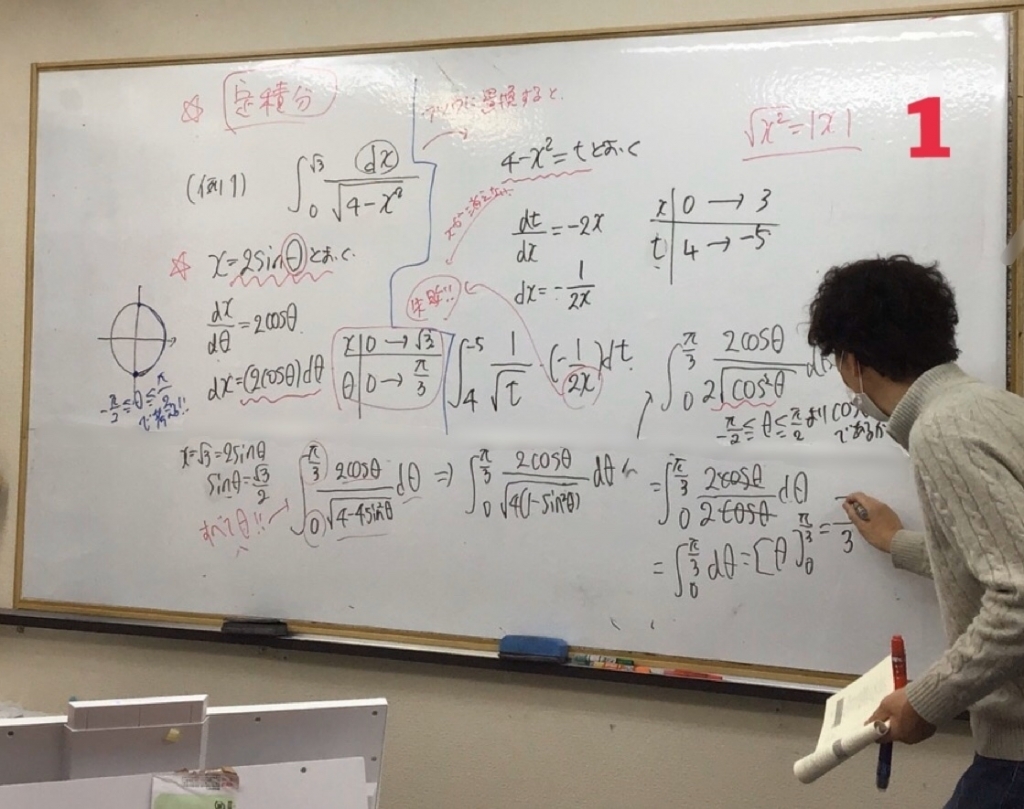 ☆ 定積分
(例1) ∫₀^√3 dx/√(4-x²)
☆ x=2sinθとおく
dx/dθ=2cosθ
dx=(2cosθ)dθ
x | 0 → √3
θ | 0 → π/3
-π/2≦θ≦π/2
x=√3=2sinθ
sinθ=√3/2
すべてθ!!
∫₀^(π/3) 2cosθ/√(4-4sin²θ) dθ ⇒ ∫₀^(π/3) 2cosθ/√(4(1-sin²θ)) dθ
置換すると、
4-x²=tとおく
dt/dx=-2x
dx=-1/2x
x | 0 → 3
t | 4 → -5
∫₄^-5 1/√t · (-1/2x)dt
√x²=|x|
1
∫₀^(π/3) 2cosθ/2√cos²θ
-π/2≦θ≦π/2 より cos
であるか
=∫₀^(π/3) 2cosθ/2cosθ dθ
=∫₀^(π/3) dθ=[θ]₀^(π/3)=‾/3